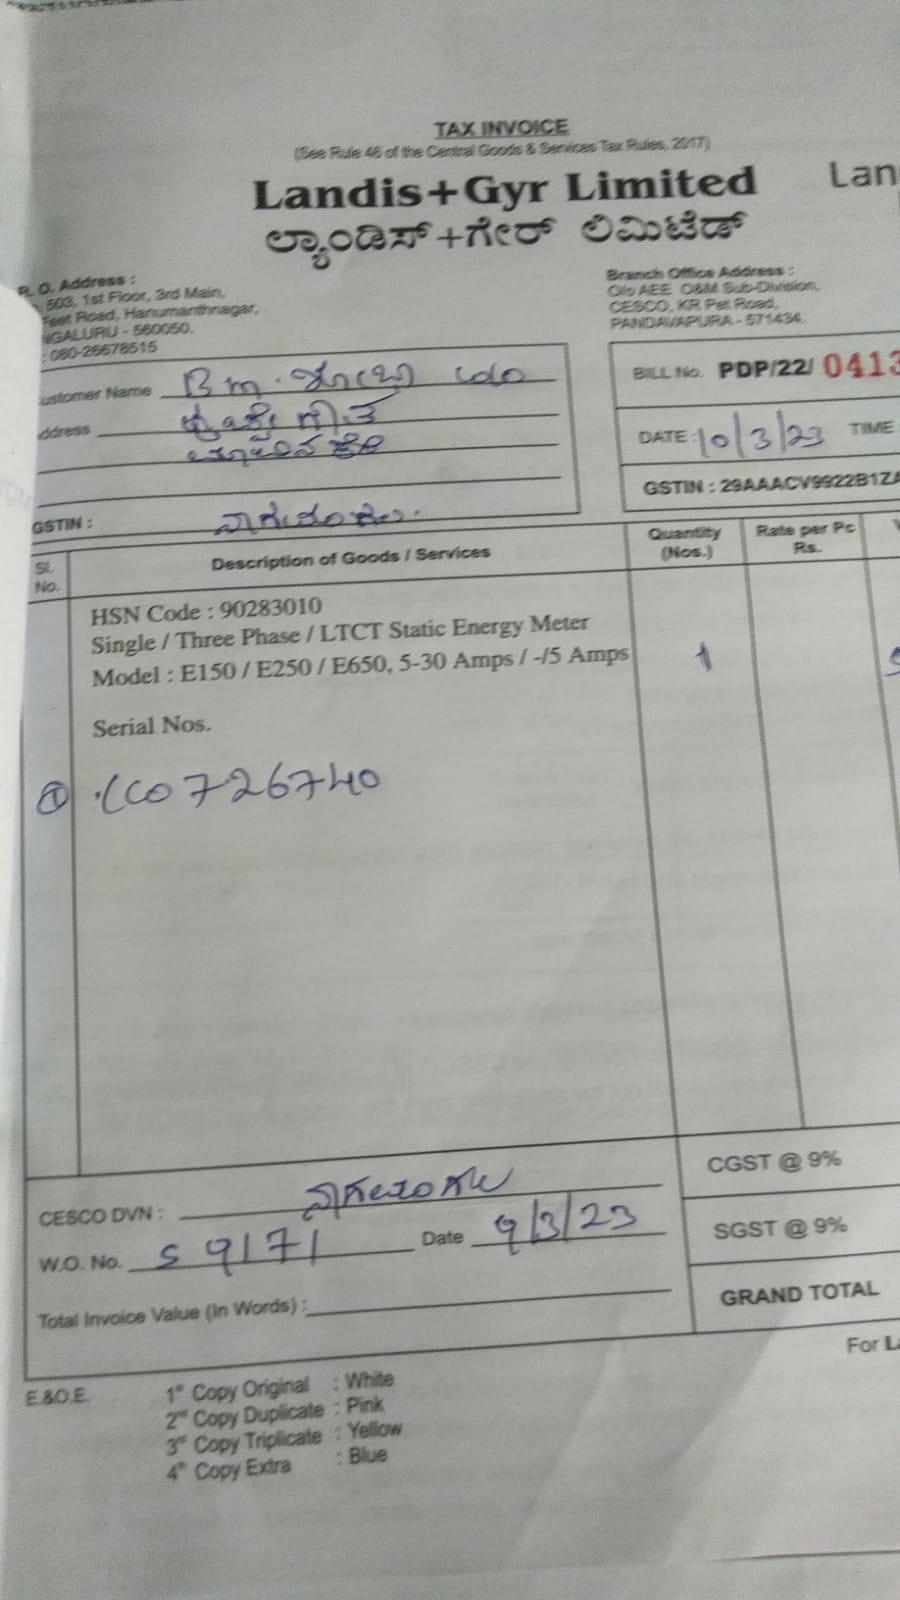 TAX INVOICE
(See Rule 46 of the Central Goods & Services Tax Rules, 2017)
Landis+Gyr Limited
Lan
ಲ್ಯಾಂಡಿಸ್+ಗೇರ್ ಲಿಮಿಟೆಡ್
R. O. Address :
503, 1st Floor, 3rd Main,
Feet Road, Hanumanthnagar,
NGALURU - 560050.
: 080-26678515
Branch Office Address :
O/o AEE O&M Sub-Division,
CESCO, KR Pet Road,
PANDAVAPURA - 571434.
ustomer Name Bm.
ddress
GSTIN :
BILL No. PDP/22/ 0413
DATE : 10/3/23 TIME
GSTIN : 29AAACV9922B1ZA
Sl. No. Description of Goods / Services Quantity (Nos.) Rate per Pc Rs.
HSN Code : 90283010
Single / Three Phase / LTCT Static Energy Meter
Model : E150 / E250 / E650, 5-30 Amps / -/5 Amps 1
Serial Nos.
1 0726740
CESCO DVN :
W.O. No. S 9171 Date 9/3/23
Total Invoice Value (In Words) :
CGST @ 9%
SGST @ 9%
GRAND TOTAL
For La
E.&O.E.
1st Copy Original : White
2nd Copy Duplicate : Pink
3rd Copy Triplicate : Yellow
4th Copy Extra : Blue